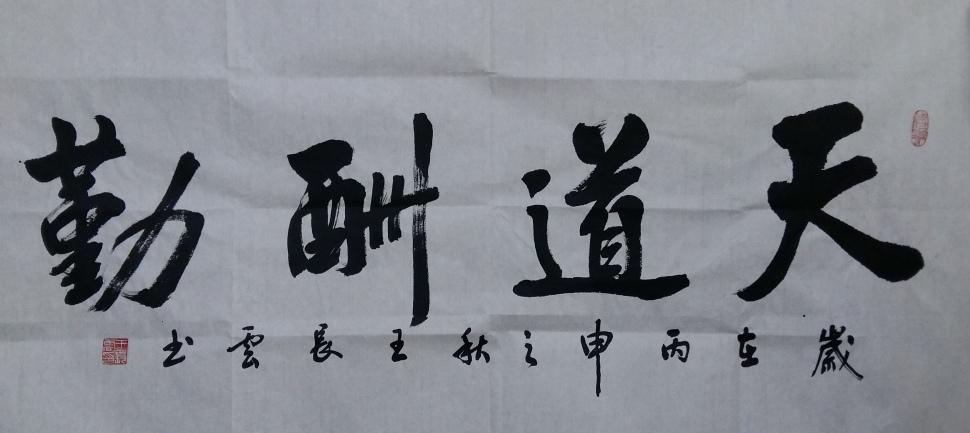 天道酬勤
歲在丙申之秋王長雲书